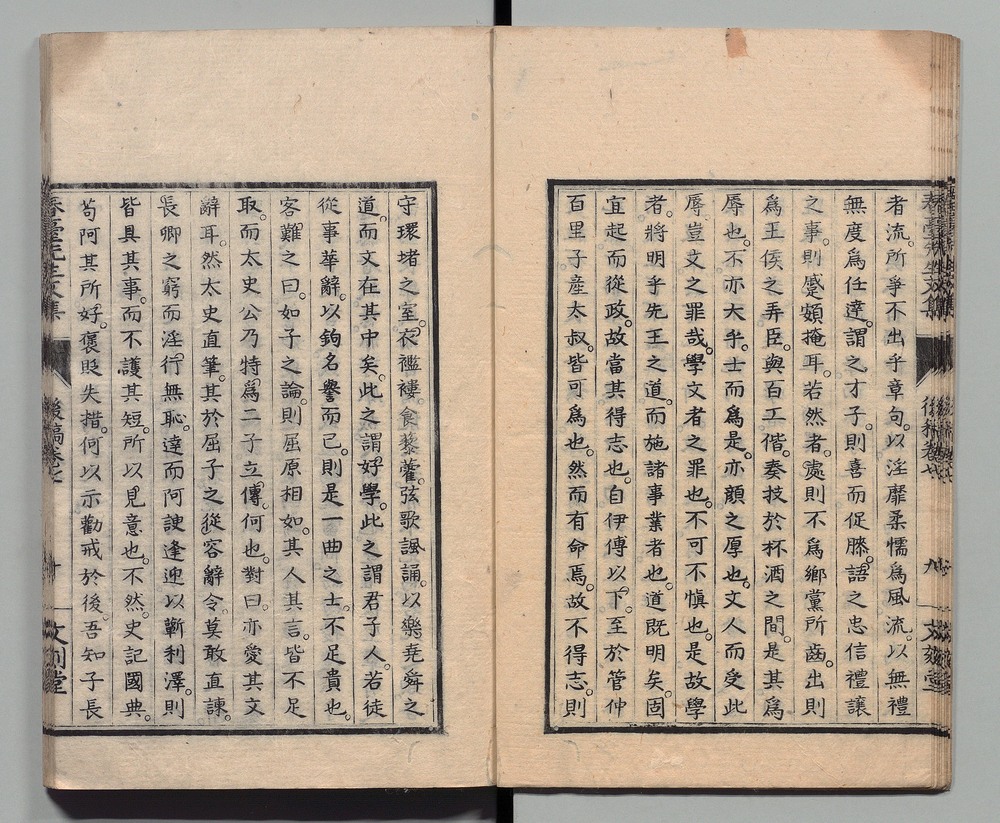 者流。所爭不出乎章句。以淫靡柔懦爲風流。以無禮
無度爲任達。謂之才子。則喜而促膝。語之忠信禮讓
之事。則蹙頞掩耳。若然者。處則不爲鄉黨所齒。出則
爲王侯之弄臣。與百工偕。奏技於杯酒之間。是其爲
辱也。不亦大乎。士而爲是。亦顏之厚也。文人而受此
辱。豈文之罪哉。學文者之罪也。不可不愼也。是故學
者。將明乎先王之道。而施諸事業者也。道既明矣。固
宜起而從政。故當其得志也。自伊傅以下。至於管仲
百里子產太叔。皆可爲也。然而有命焉。故不得志。則
守環堵之室。衣襤褸。食藜藿。弦歌諷誦。以樂堯舜之
道。而文在其中矣。此之謂好學。此之謂君子人。若徒
從事華辭。以鉤名譽而已。則是一曲之士。不足貴也。
客難之曰。如子之論。則屈原相如。其人其言。皆不足
取。而太史公乃特爲二子立傳。何也。對曰。亦愛其文
辭耳。然太史直筆。其於屈子之從容辭令。莫敢直諫。
長卿之窮而淫行無恥。達而阿諛逢迎以蘄利澤。則
皆具其事。而不護其短。所以見意也。不然。史記國典。
苟阿其所好。襃貶失措。何以示勸戒於後。吾知子長
春臺先生文集
後稿卷之七
十